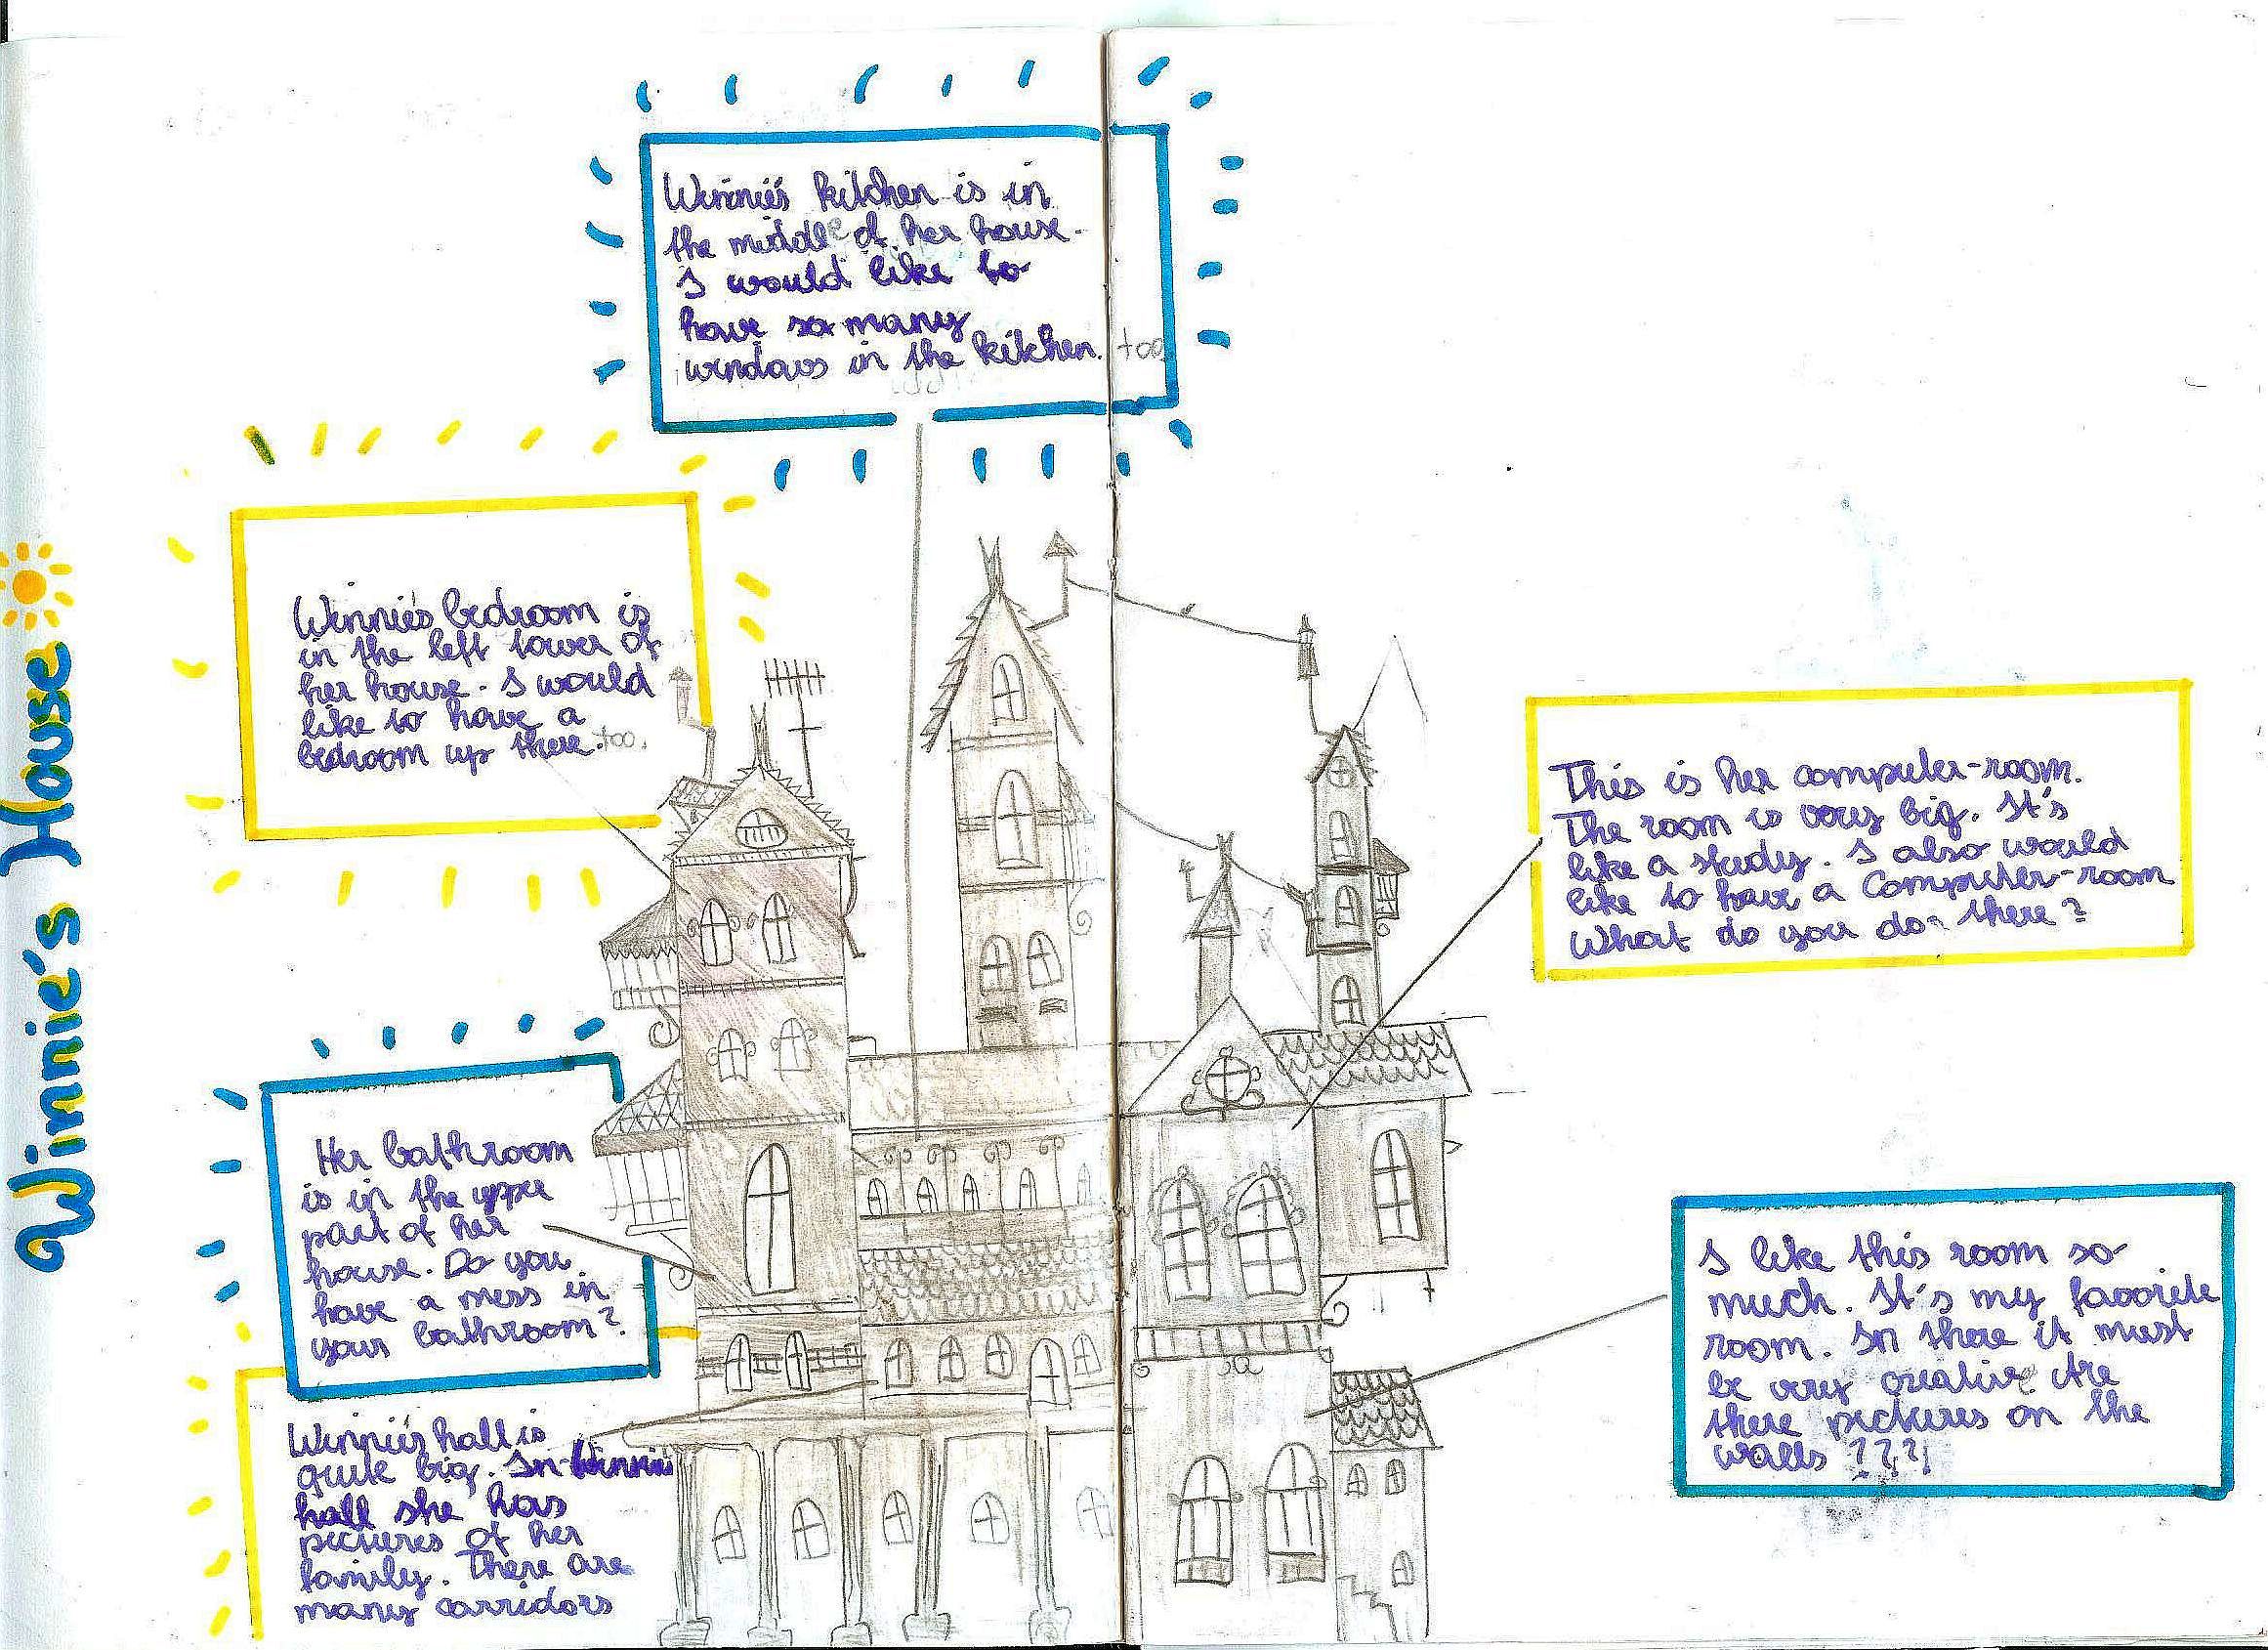 Winnie's House
Winnie's kitchen is in
the middle of her house.
I would like to
have so many
windows in the kitchen. too
Winnie's bedroom is
in the left tower of
her house. I would
like to have a
bedroom up there. too.
Her bathroom
is in the upper
part of her
house. Do you
have a mess in
your bathroom?
Winnie's hall is
quite big. In Winnie's
hall she has
pictures of her
family. There are
many corridors
This is her computer-room.
The room is very big. It's
like a study. I also would
like to have a Computer-room
What do you do there?
I like this room so
much. It's my favorite
room. In there it must
be very creative Are
there pictures on the
walls ???